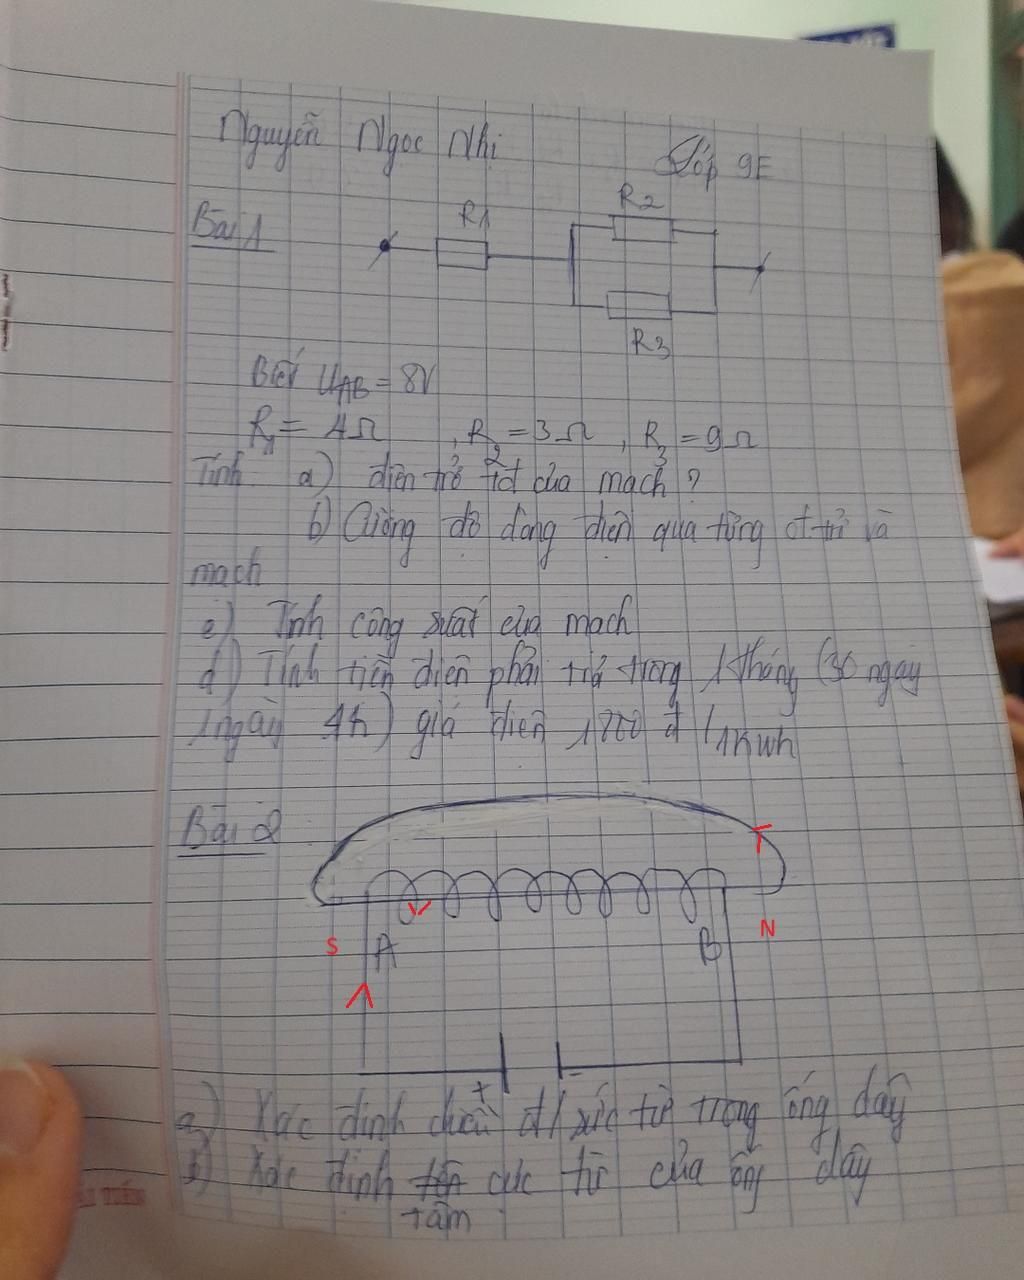 Nguyễn Ngọc Nhi Lớp 9E
Bài 1
R1
R2
R3
Biết UAB = 8V
R1 = 4Ω , R2 = 3Ω , R3 = 9Ω
Tính a) điện trở tđ của mạch ?
b) Cường độ dòng điện qua từng đ trở và
mạch
c) Tính công suất của mạch
d) Tính tiền điện phải trả trong 1 tháng (30 ngày
1 ngày 4h) giá điện đ/1kwh
Bài 2
S A B N
+ -
a) Xác định chiều đ/ sức từ trong ống dây
b) Xác định cực từ của ống dây